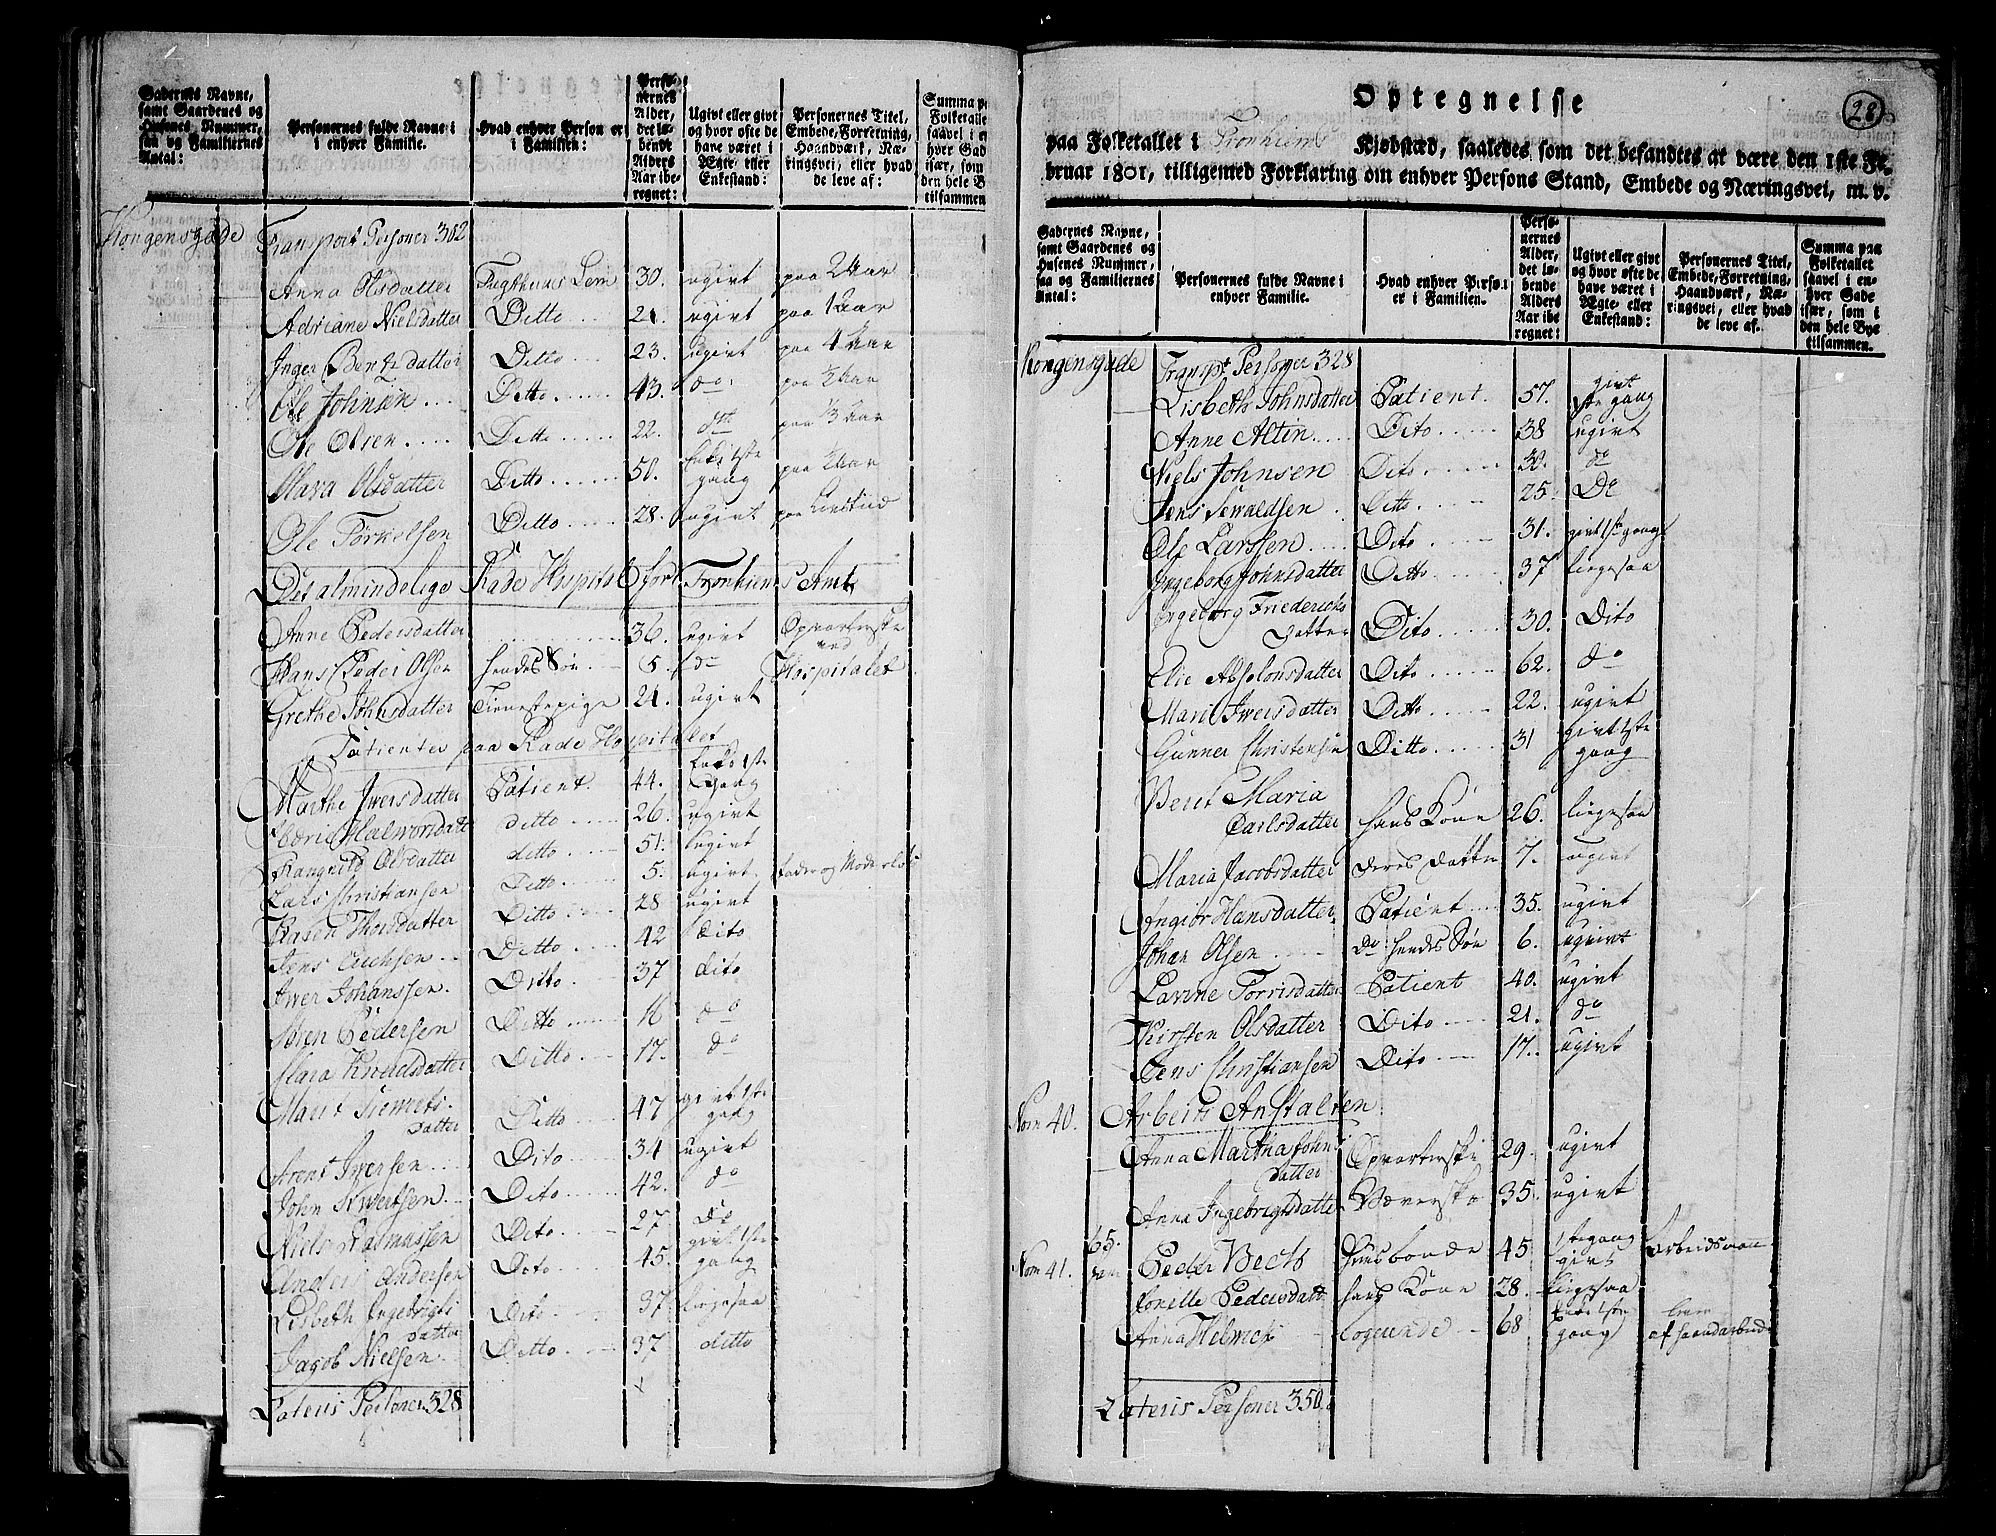 Gadernes Navne, samt Gaardenes og Husenes Nummer, saa og Familiernes Antal:
Personernes fulde Navne i enhver Familie.
Hvad enhver Person er i Familien:
Personernes Alder, det løbende Alders Aar iberegnet:
Ugivt eller givt og hvor ofte de have været i Ægte- eller Enkestand:
Personernes Titel, Embede, Forretning, Haandværk, Næringsvei, eller hvad de leve af:
Summa p
Folketalle
saavel i e
hver Gad
især, som
den hele By
tilsammen
Kongensgade Transport Personer 302
Anna Olsdatter Tugthuus Lem 30. ugivt paa 2 Aar
Adriane Nielsdatter Ditto 21. ugivt paa 1 Aar
Inger Berntzdatter Ditto 23. ugivt paa 4 Aar
Ole Johnsen Ditto 43. do. paa ½ Aar
Ole Olsen Ditto 22. paa 3 Aar
Mara Olsdatter Ditto 50. Enke 1ste gang paa 2 Aar
Ole Torkelsen Ditto 28. ugivt paa Livstiid
Det almindelige Rade Hospital for Tronhiems Amt
Anne Pedersdatter 36. ugivt Opvarterske ved
Hans Peder Olsen hendes Søn 5. do Hospitalet
Grethe Johnsdatter Tienestepige 21. ugivt
Patienter paa Rade Hospitalet
Marthe Iwersdatter Patient 44. Enke 1ste Gang
Halworsdatt ditto 26. ugivt
Rangnild Olsdatter ditto 51. ugivt
Lars Christiansen Ditto 5. ugivt. Fader og Moderløs
Karen Thorsdatter Ditto 28 ugivt
Jens Erichsen Ditto 42 Dito
Iwer Johanssen Ditto 37 dito
Søren Pedersen Ditto 16 do
Mara Knudsdatter Ditto 17. do
Marit Siemens datter Ditto 47 givt 1ste gang
Arent Iwersen Dito 34 ugivt
John Siwertsen Dito 42. do
Niels Rasmussen Dito 27 do
Anders Andersen Dito 45. givt 1ste gang
Lisbeth Ingebrigts datter Dito 37 ligesaa
Jagob Nielsen Ditto 37 ditto
Lateris Personer 328
28
Optegnelse
paa Folketallet i Tronhiems Kjøbstæd, saaledes som det befandtes at være den 1ste Fe-
bruar 1801, tilligemed Forklaring om enhver Persons Stand, Embede og Næringsvei, m. v.
Gadernes Navne, samt Gaardenes og Husenes Nummer, saa og Familiernes Antal:
Personernes fulde Navne i enhver Familie.
Hvad enhver Person er i Familien.
Personernes Alder, det løbende Alders Aar iberegnet:
Ugivt eller givt og hvor ofte de have været i Ægte- eller Enkestand:
Personernes Titel, Embede, Forretning, Haandværk, Næringsvei, eller hvad de leve af.
Summa paa Folketallet saavel i enhver Gade især, som i den hele Bye tilsammen.
Kongensgade Transpt Personer 328
Lisbeth Johnsdatter Patient. 57. givt 1ste gang
Anne Altin Dito 38 ugivt
Niels Johnsen Dito 30. do
Jens Sewaldsen Ditto 25. Do
Ole Larssen Dito 31. givt 1ste gang
Ingeborg Johnsdatter Ditto 37 ligesaa
Ingeborg Friederichs datter Dito 30. Dito
Elie Absolonsdatter Dito 62. do
Marit Iwersdatter Ditto 22. ugivt
Gunner Christensen Ditto 31 givt 1ste gang
Beret Maria Carlsdatter hans Kone 26. ligesaa
Maria Jacobsdatter deres datter 7. ugivt
Angier Hansdatter Patient 35. ugivt
Johan Olsen Do hendes Søn 6. ugivt
Lavine Torrisdatter Patient 40. ugivt
Kirsten Olsdatter Dito 21. do
Jens Christiansen Dito 17. ugivt
Nom 40. Arbeits Anstalten
Anna Martha Johns datter Opvarterske 29. ugivt
Anna Ingebrigtsdatter Væverske 35. ugivt
Nom 41. 65. Peder Bech Huusbonde 45 1ste gang givt Arbeidsman
Pedersdatt hans Kone 28. ligesaa
Anna Helmers Logerende 68 Enke 1ste gang lever af haandarbeide
Lateris Personer 350